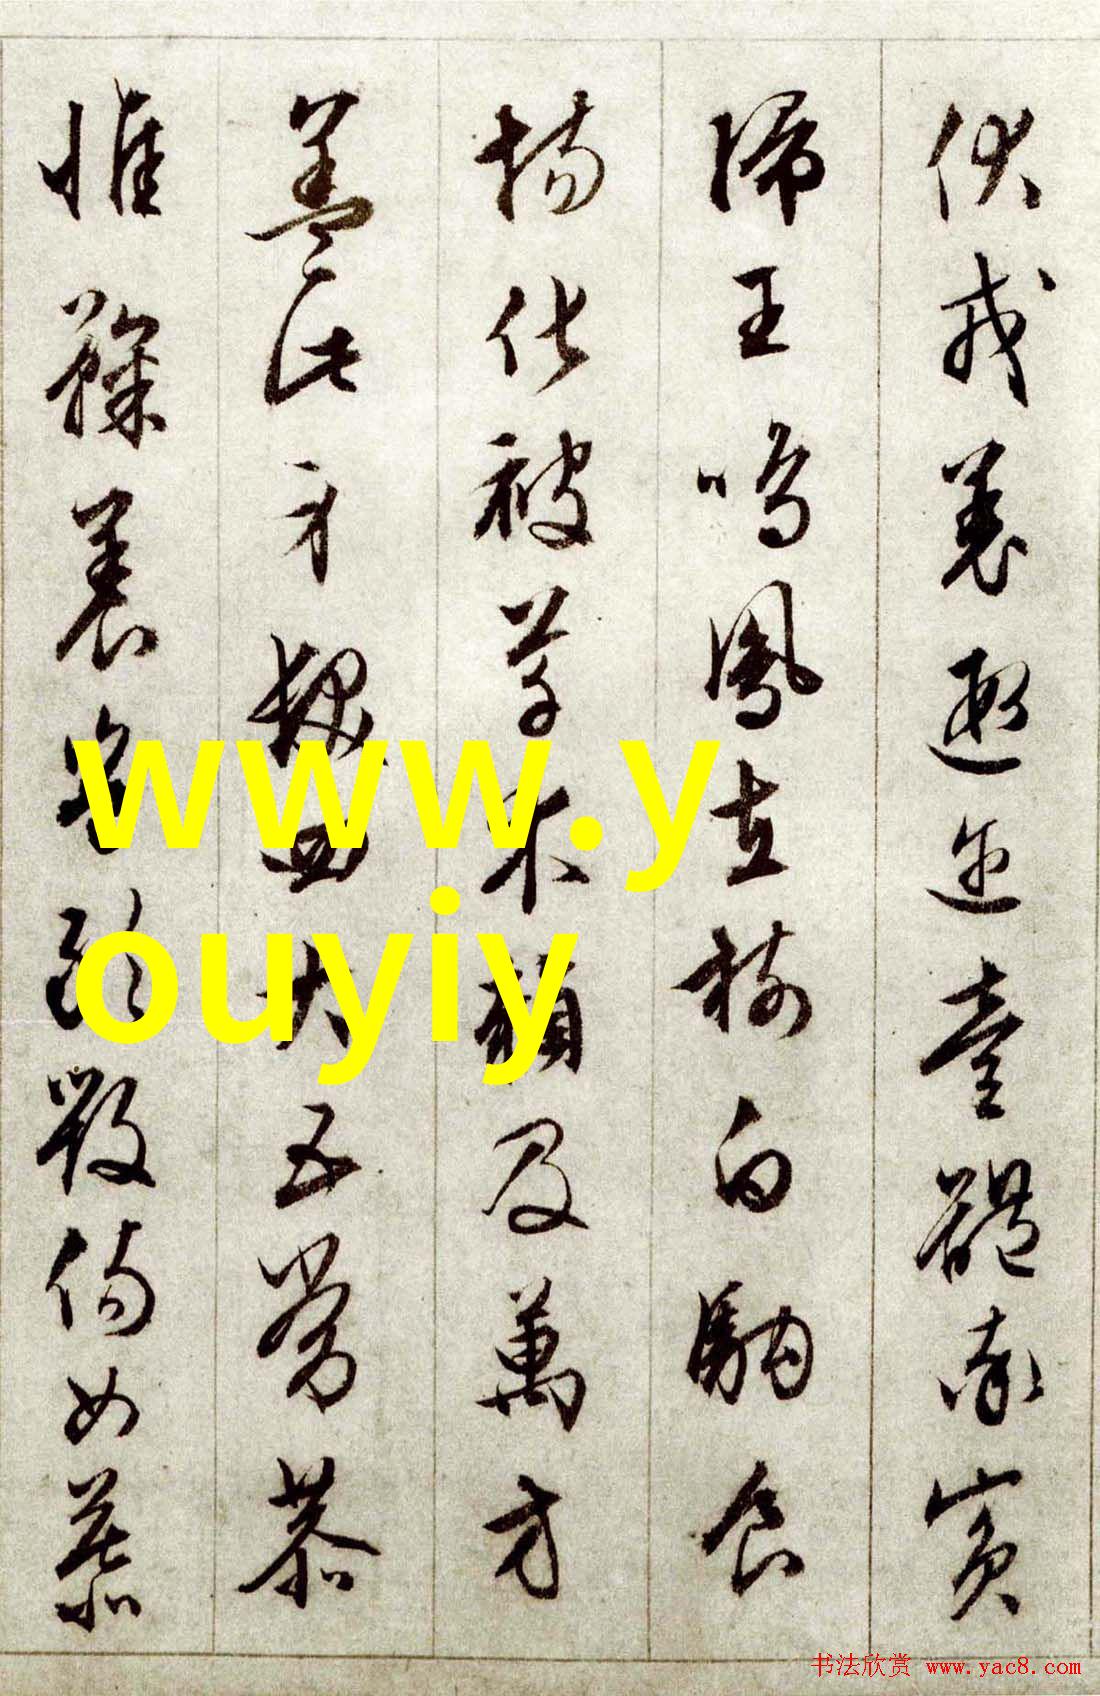 伏戎羌遐邇壹體率賓
歸王鳴鳳在樹白駒食
場化被草木賴及萬方
蓋此身髮四大五常恭
惟鞠養豈敢毀傷女慕
www.y
ouyiy
书法欣赏 www.yac8.com